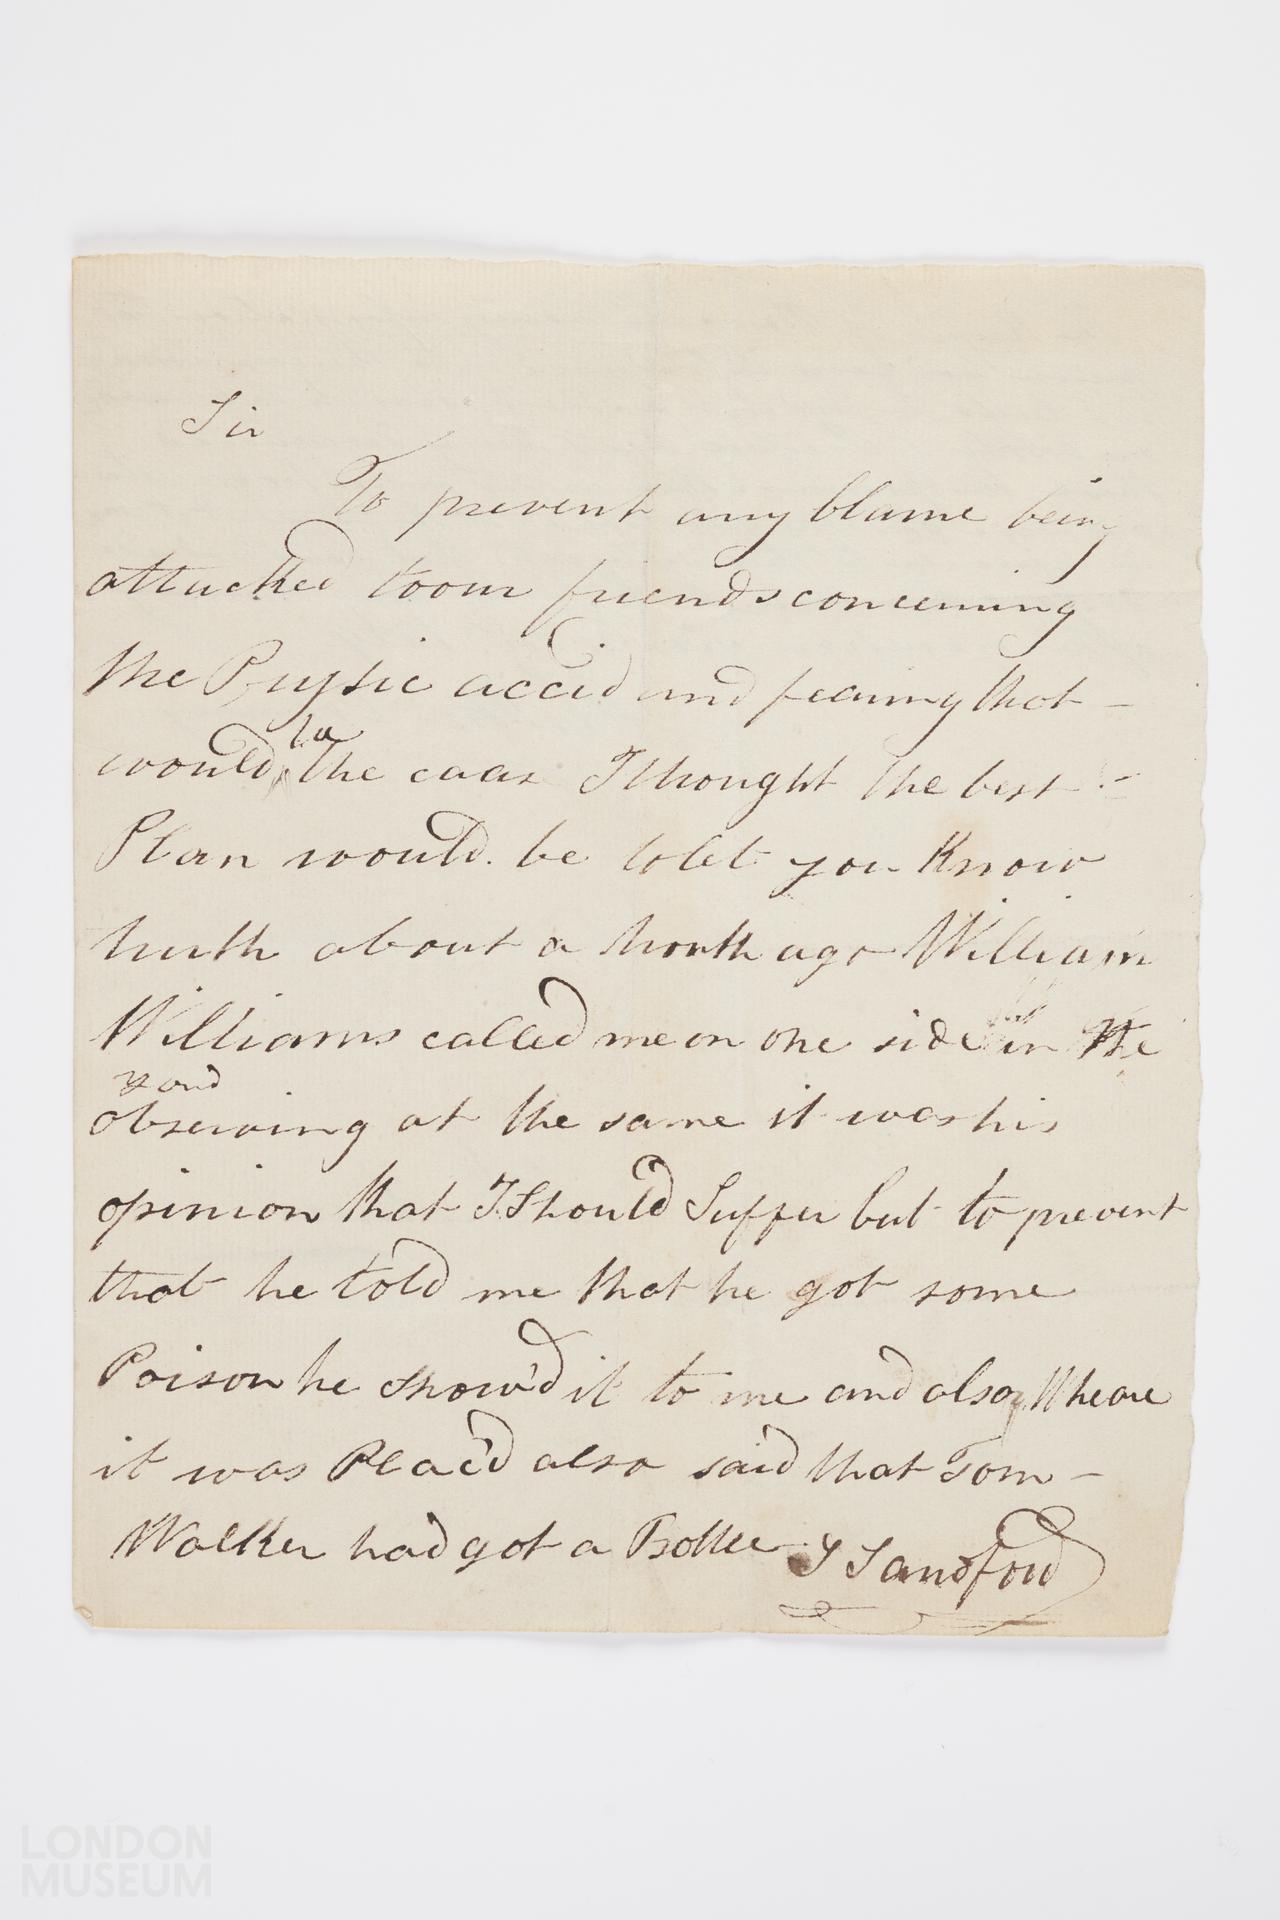 Sir
To prevent any blame being
attacked to our friends concerning
the Physic accid and fearing that -
be
would the caas I thought the best -
Plan would be to let you Know
truth about a Month ago William
Williams called me on one side in the
yard
observing at the same it was his
opinion that I Should Suffer but to prevent
that he told me that he got some
Poison he show'd it to me and also Wheare
it was Plac'd also said that Tom -
Walker had got a Bottle J Sandford
LONDON
MUSEUM